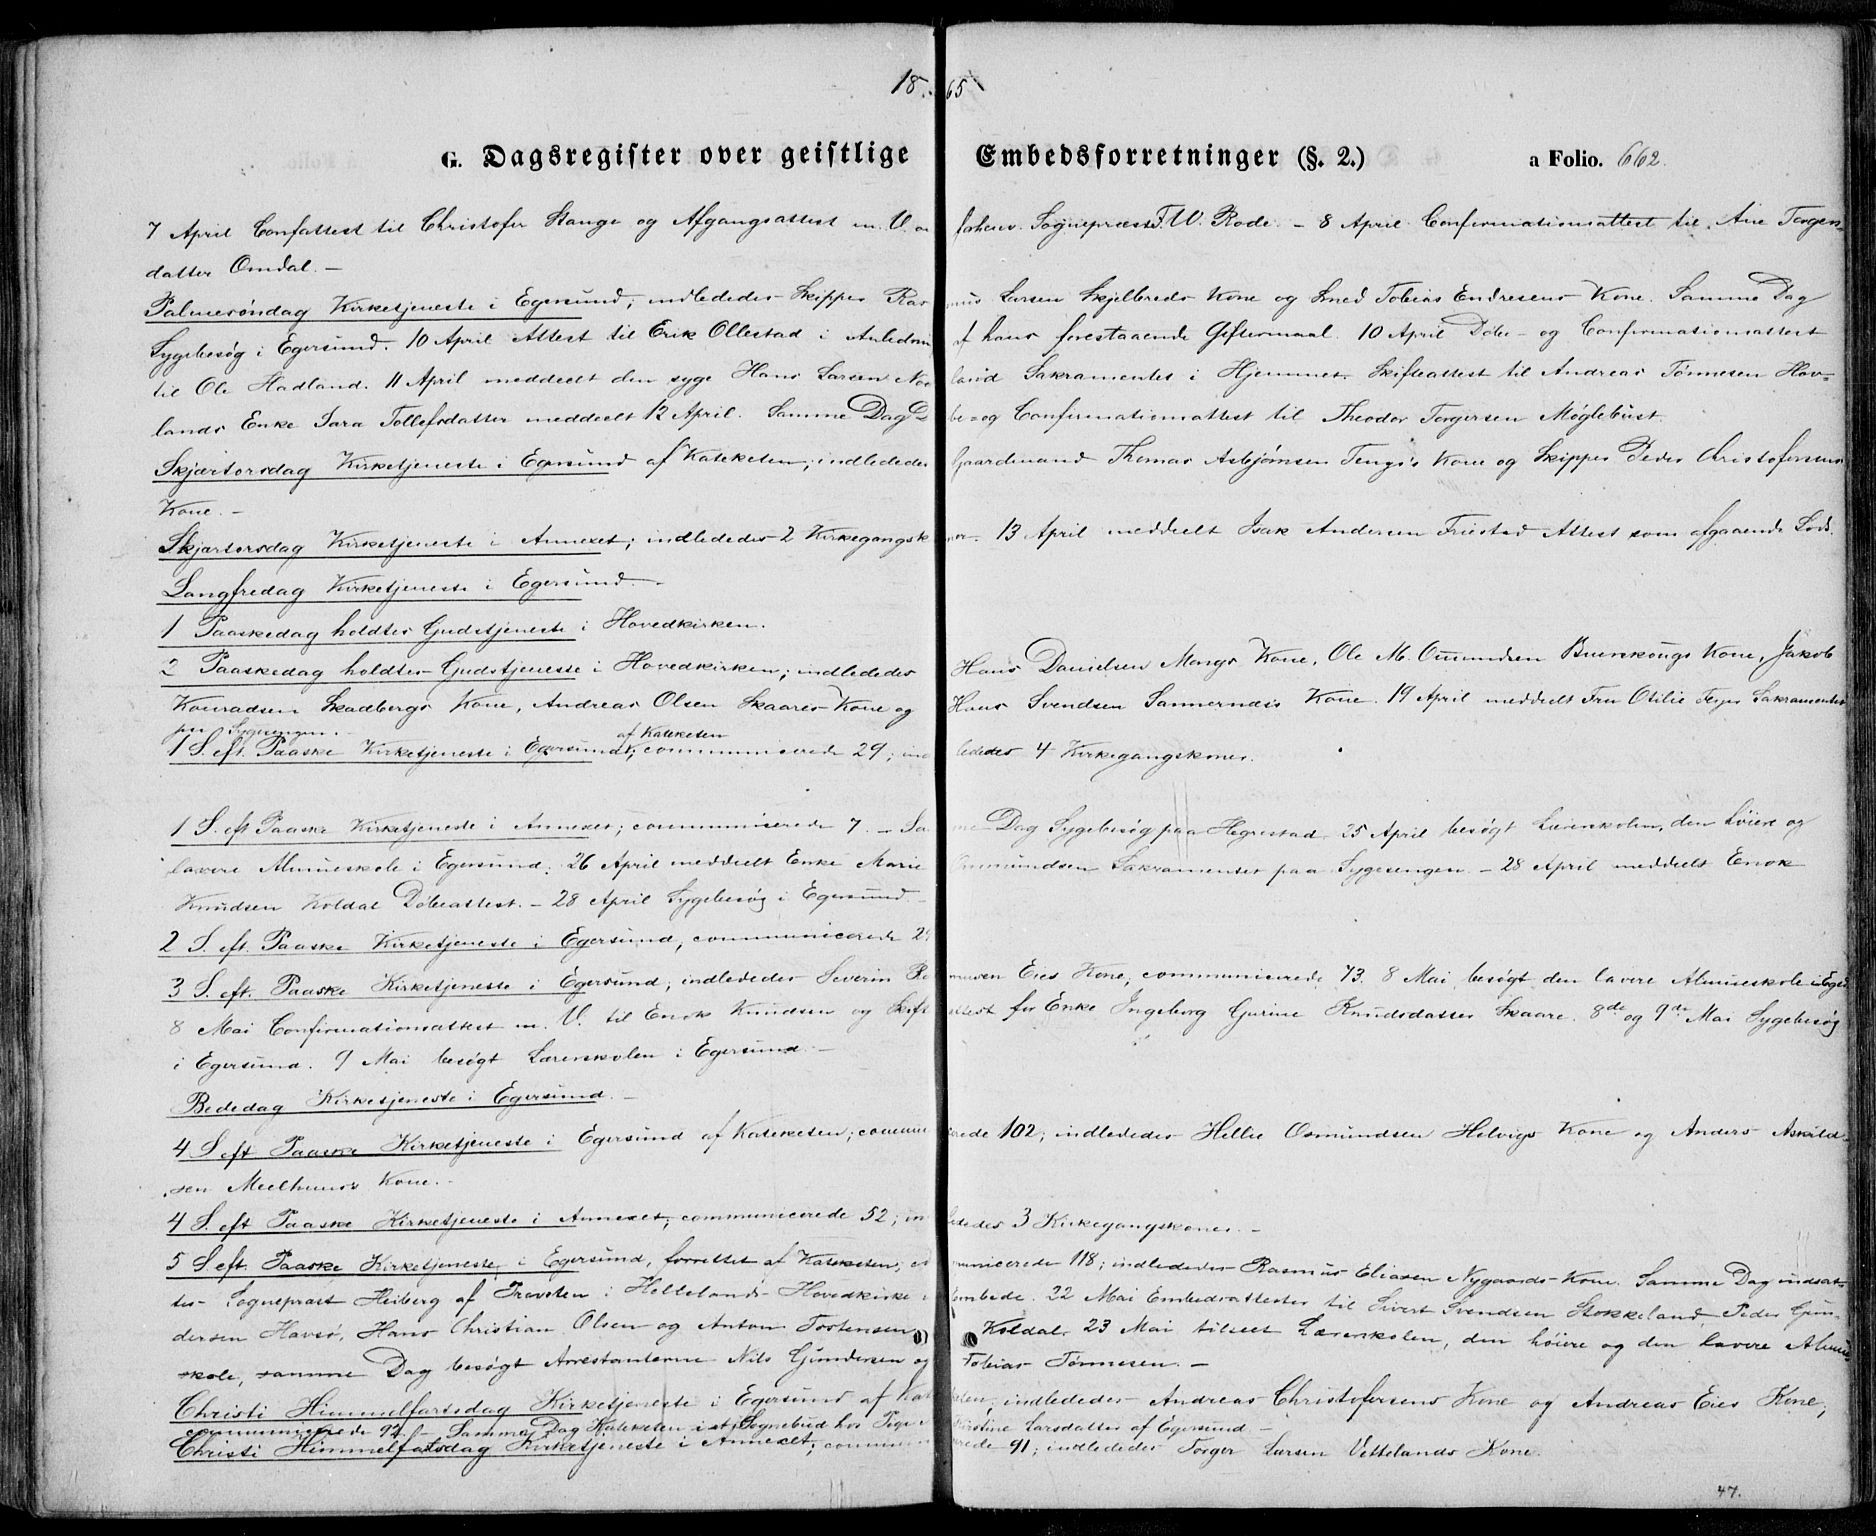 1865
G. Dagsregister over geistlige Embedsforretninger (§. 2.) a Folio. 662.
7 April Confattest til Christofer Stange og Afgangsattest m. V. Sognepræst F. W. Rode. – 8 April Confirmationsattest til Ane Torgers-
datter Omdal. –
Palmesøndag Kirketjeneste i Egersund; indlededes Skipper Rasmus Larsen Skjelbreds Kone og Smed Tobias Endresens Kone. Samme Dag
Sygebesøg i Egersund. 10 April Attest til Erik Ollestad i Anledning af hans forestaaende Giftermaal. 10 April Døbe- og Confirmationsattest
til Ole Hadland. 11 April meddeelt den syge Hans Larsen Sakramentet i Hjemmet. Skifteattest til Andreas Tønnesen Hov-
lands Enke Sara Tollefsdatter meddeelt 12 April. Samme Dag Døbe- og Confirmationsattest til Theodor Torgersen Møglebust.
Skjærtorsdag Kirketjeneste i Egersund af Kateketen; indlededes Gaardmand Thomas Asbjørnsen Tengs's Kone og Skipper Peder Christofersens
Kone. –
Skjærtorsdag Kirketjeneste i Annexet; indlededes 2 Kirkegangskoner. 13 April meddeelt Isak Andersen Friestad Attest som afgaaende Lods.
Langfredag Kirketjeneste i Egersund. –
1 Paaskedag holdtes Gudstjeneste i Hovedkirken.
2 Paaskedag holdtes Gudstjeneste i Hovedkirken; indlededes Hans Danielsen Mongs Kone, Ole M. Omundsen Kone, Jakob
Konradsen Skadbergs Kone, Andreas Olsen Skaares Kone og Hans Svendsen Sannernæs Kone. 19 April meddelt Fru Otilie Feyer Sakramentet
paa Sygesengen. –
1 S. eft. Paaske Kirketjeneste i Egersund af Kateketen; communicerede 29; indlededes 4 Kirkegangskoner.
1 S. eft Paaske Kirketjeneste i Annexet; communicerede 7. – Samme Dag Sygebesøg paa Hegrestad. 25 April besøgt Lærerskolen, den høiere og
lavere Almueskole i Egersund. 26 April meddeelt Enke Marie Ommundsen Sakramentet paa Sygesengen. – 28 April meddeelt Enok
Knudsen Koldal Døbeattest. – 28 April Sygebesøg i Egersund. –
2 S. eft. Paaske Kirketjeneste i Egersund, communicerede
3 S. eft. Paaske Kirketjeneste i Egersund; indlededes Severin Rasmusen Eies Kone, communicerede 73. 8 Mai besøgt den lavere Almueskole i Egers.
8 Mai Confirmationsattest m. V. til Enok Knudsen og Skifteattest for Enke Ingeborg Gurine Knudsdatter Skaare. 8de og 9de Mai Sygebesøg
i Egersund. 9 Mai besøgt Lærerskolen i Egersund. –
Bededag Kirketjeneste i Egersund. –
4 S. eft Paaske Kirketjeneste i Egersund af Kateketen; communicerede 102; indlededes Hellie Osmundsen Helvigs Kone og Anders Askild-
sen Meelhuus's Kone. –
4 S. eft Paaske Kirketjeneste i Annexet; communicerede 52; indlededes 3 Kirkegangskoner. –
5 S. eft. Paaske Kirketjeneste i Egersund, forrettet af Kateketen; communicerede 118; indlededes Rasmus Eliasen Nygaards Kone. Samme Dag indsat-
tes Sognepræst Heiberg af Provsten i Hellelands Hovedkirke i Embede. 22 Mai Embedsattester til Sivert Svendsen Stokkeland, Peder Gun-
dersen Havsø, Hans Christian Olsen og Anton Tostensen Koldal. 23 Mai tilseet Lærerskolen, den høiere og den lavere Almue
skole, samme Dag besøgt Arrestanterne Nils Gundersen og Tobias Tønnesen. –
Christi Himmelfartsdag Kirketjeneste i Egersund af Kateketen, indlededes Andreas Christofersens Kone og Andreas Eies Kone,
communicerede 92. – Samme Dag Kateketen i Sognebud hos Pige Kristine Larsdatter af Egersund. –
Christi Himmelfartsdag Kirketjeneste i Annexet; communicerede 91; indlededes Torger Larsen Vettelands Kone.
47.